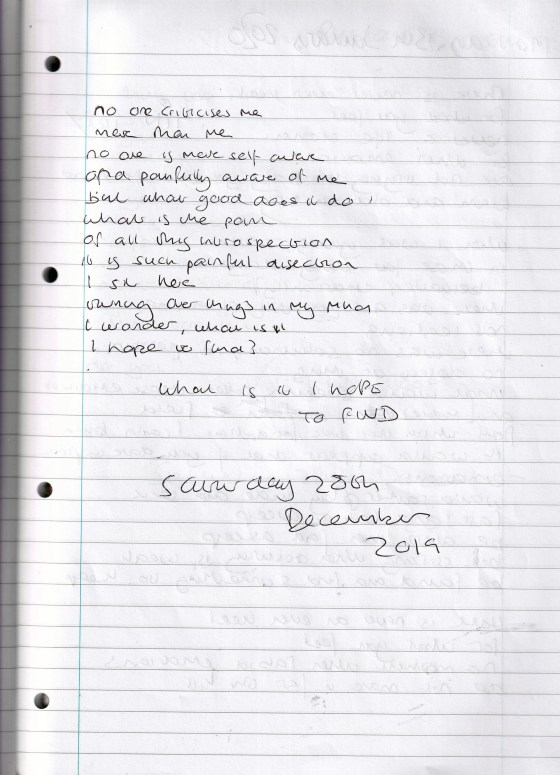 no one criticises me
more than me
no one is more self aware
and painfully aware of me
but what good does it do
what is the point
of all this introspection
it is such painful disection
I sit here
turning over things in my mind
I wonder, what is it
I hope to find?
What is it I HOPE
TO FIND
Saturday 28th
December
2019